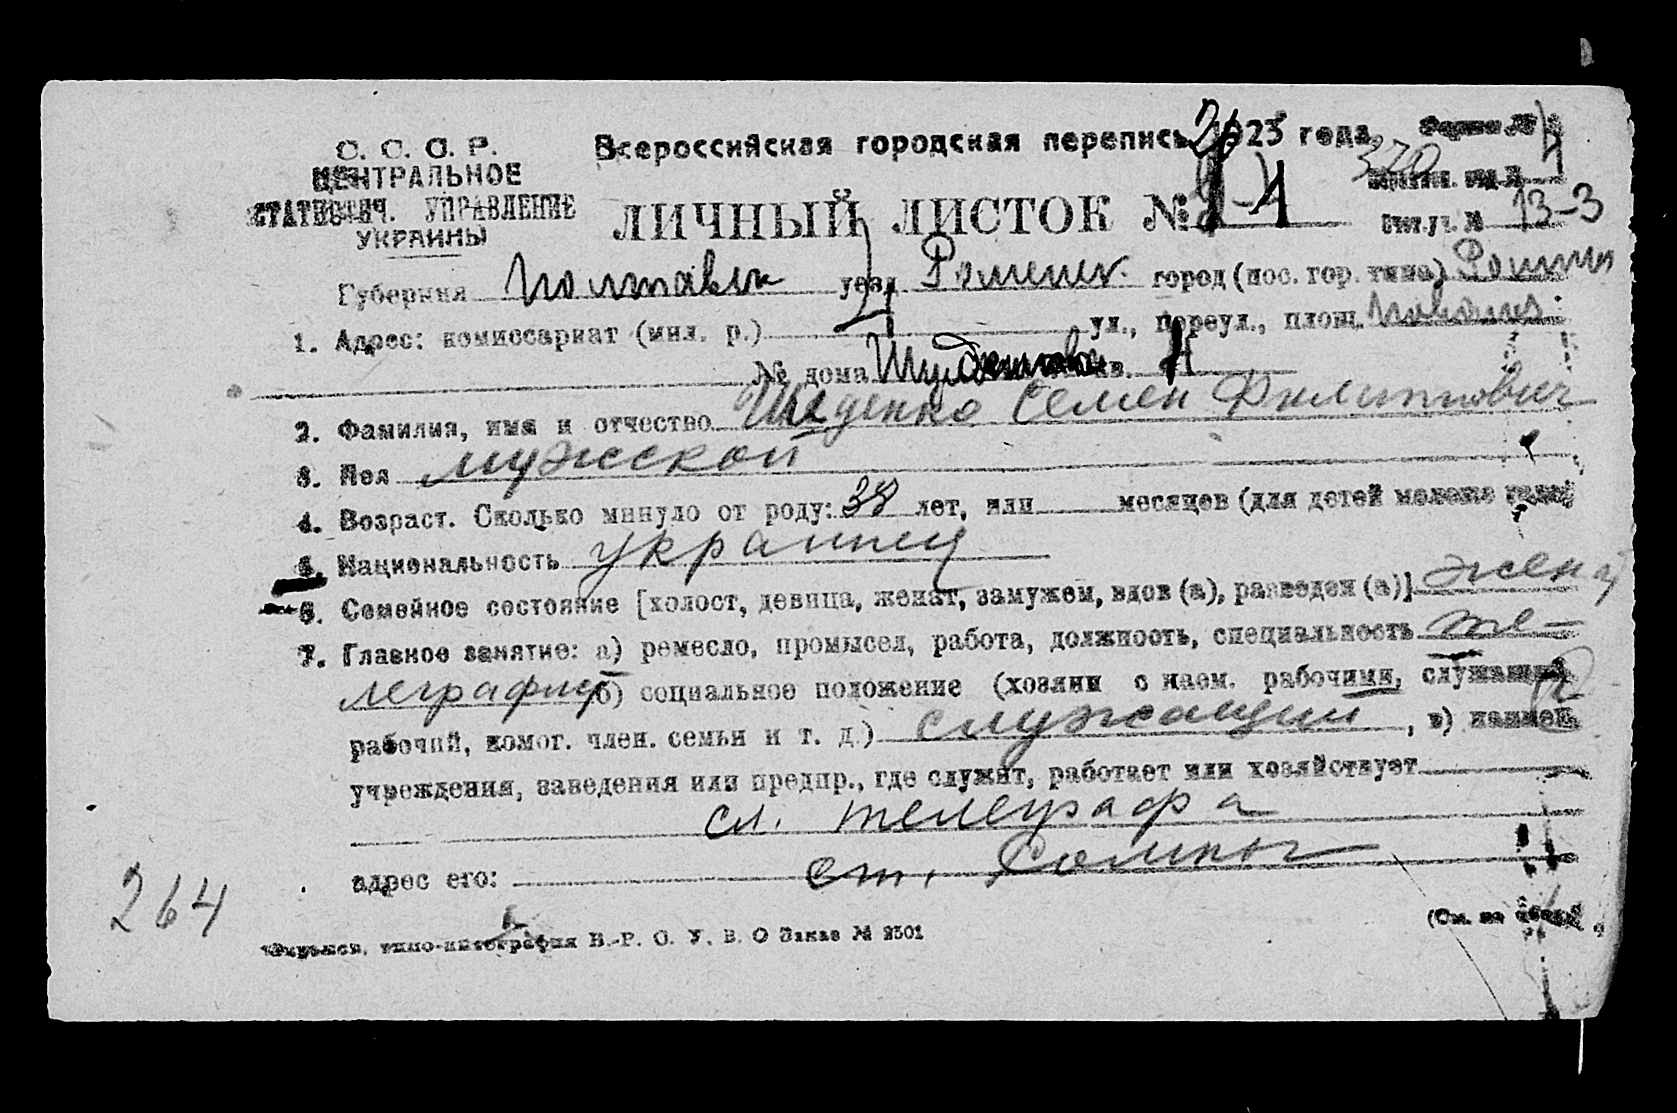 С. С. С. Р.
ЦЕНТРАЛЬНОЕ
СТАТИСТИЧ. УПРАВЛЕНИЕ
УКРАИНЫ
Всероссийская городская перепись 1923 года
ЛИЧНЫЙ ЛИСТОК №
320
13-3
Губерния Полтавск уезд Роменск. город (пос. гор. типа) Ромны
1. Адрес: комиссариат (мил. р.) ул., переул., площ.
№ дома
2. Фамилия, имя и отчество Семен Филиппович
3. Пол мужской
4. Возраст. Сколько минуло от роду: 38 лет, или месяцев (для детей моложе года)
5. Национальность украинец
6. Семейное состояние [холост, девица, женат, замужем, вдов (а), разведен (а)] женат
7. Главное занятие: а) ремесло, промысел, работа, должность, специальность те-
леграфист б) социальное положение (хозяин с наем. рабочими, служащий,
рабочий, помог. член. семьи и т. д.) служащий, в) наимен.
учреждения, заведения или предпр., где служит, работает или хозяйствует
сл. телеграфа
адрес его: ст. Ромны
264
(См. на обор.)
типо-литография В.-Р. С. У. В. О Заказ № 2501